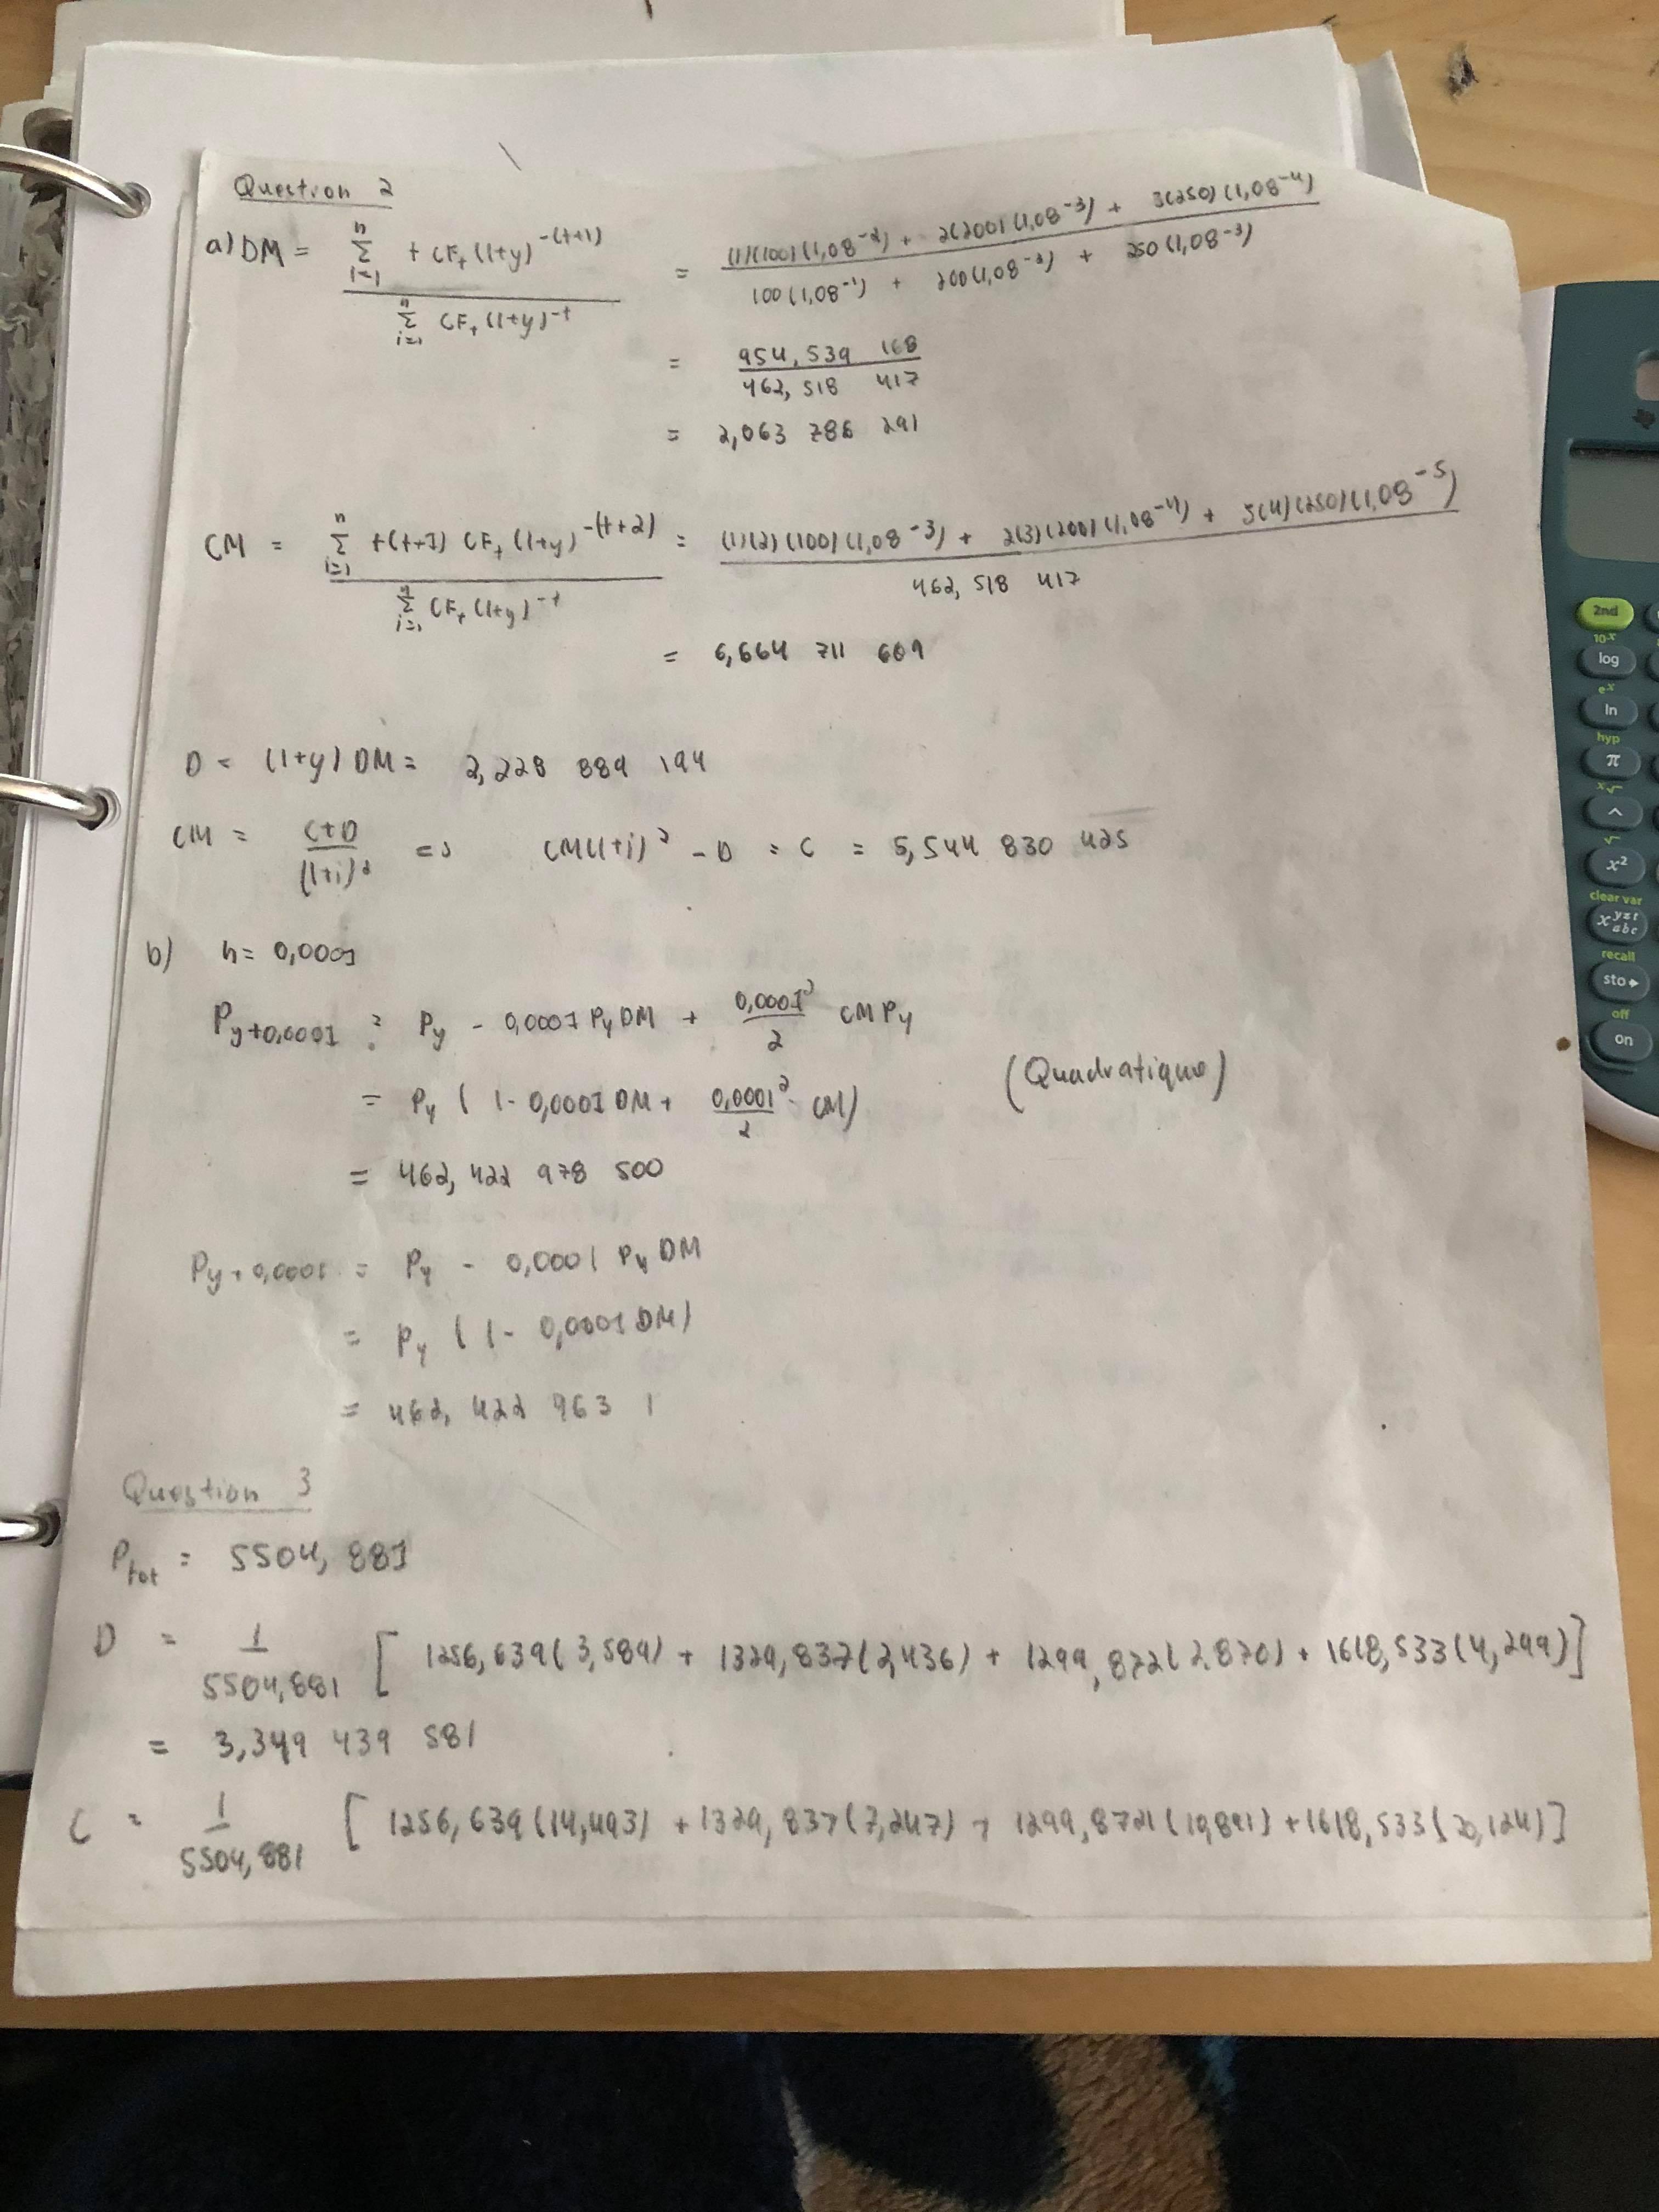 Question 2
a) DM = Σ(i=1, n) t CF_t (1+y)^-(t+1) / Σ(i=1, n) CF_t (1+y)^-t = (1)(100)(1,08^-2) + 2(200)(1,08^-3) + 3(250)(1,08^-4) / 100(1,08^-1) + 200(1,08^-2) + 250(1,08^-3)
= 954,539 168 / 462,518 417
= 2,063 786 291
CM = Σ(i=1, n) t(t+1) CF_t (1+y)^-(t+2) / Σ(i=1, n) CF_t (1+y)^-t = (1)(2)(100)(1,08^-3) + 2(3)(200)(1,08^-4) + 3(4)(250)(1,08^-5) / 462,518 417
= 6,664 711 609
D = (1+y) DM = 2,228 889 194
CM = C+D / (1+i)² => CM(1+i)² - D = C = 5,544 830 425
b) h = 0,0001
P_y+0,0001 = P_y - 0,0001 P_y DM + 0,0001²/2 CM P_y
= P_y ( 1 - 0,0001 DM + 0,0001²/2 CM) (Quadratique)
= 462,422 978 500
P_y+0,0001 = P_y - 0,0001 P_y DM
= P_y ( 1 - 0,0001 DM)
= 462,422 963 1
Question 3
P_tot = 5504,881
D = 1/5504,881 [ 1256,639(3,589) + 1329,837(2,436) + 1299,872(2,870) + 1618,533(4,299)]
= 3,349 439 581
C = 1/5504,881 [ 1256,639(14,493) + 1329,837(7,247) + 1299,872(10,891) + 1618,533(20,124)]
2nd
10^x
log
e^x
ln
hyp
π
x√
^
√
x²
clear var
x yzt abc
recall
sto▸
off
on